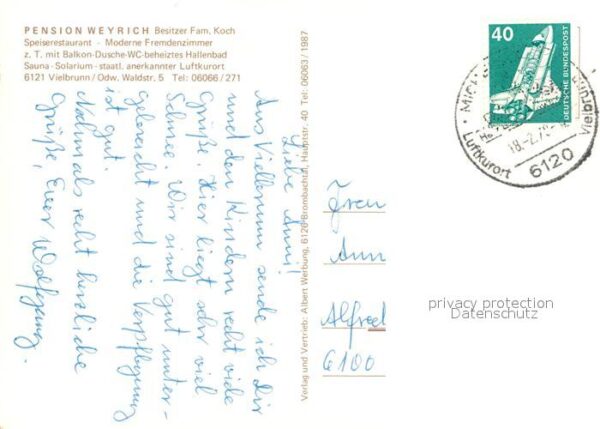 PENSION WEYRICH Besitzer Fam. Koch
Speiserestaurant - Moderne Fremdenzimmer
z. T. mit Balkon-Dusche-WC-beheiztes Hallenbad
Sauna-Solarium-staatl. anerkannter Luftkurort
6121 Vielbrunn/Odw. Waldstr. 5 Tel: 06066/271
Liebe Anni!
Aus Vielbrunn sende ich Dir
und den Kindern recht viele
Grüße. Hier liegt sehr viel
Schnee. Wir sind gut unter-
gebracht und die Verpflegung
ist gut.
Nochmals recht herzliche
Grüße, Euer Wolfgang.
Verlag und Vertrieb: Albert Werbung, 6126 Brombachtal, Hauptstr. 40 Tel: 06063/1987
40
DEUTSCHE BUNDESPOST
18.-2.79
Luftkurort
6120
Frau
Ann
Alfred
6100
privacy protection
Datenschutz